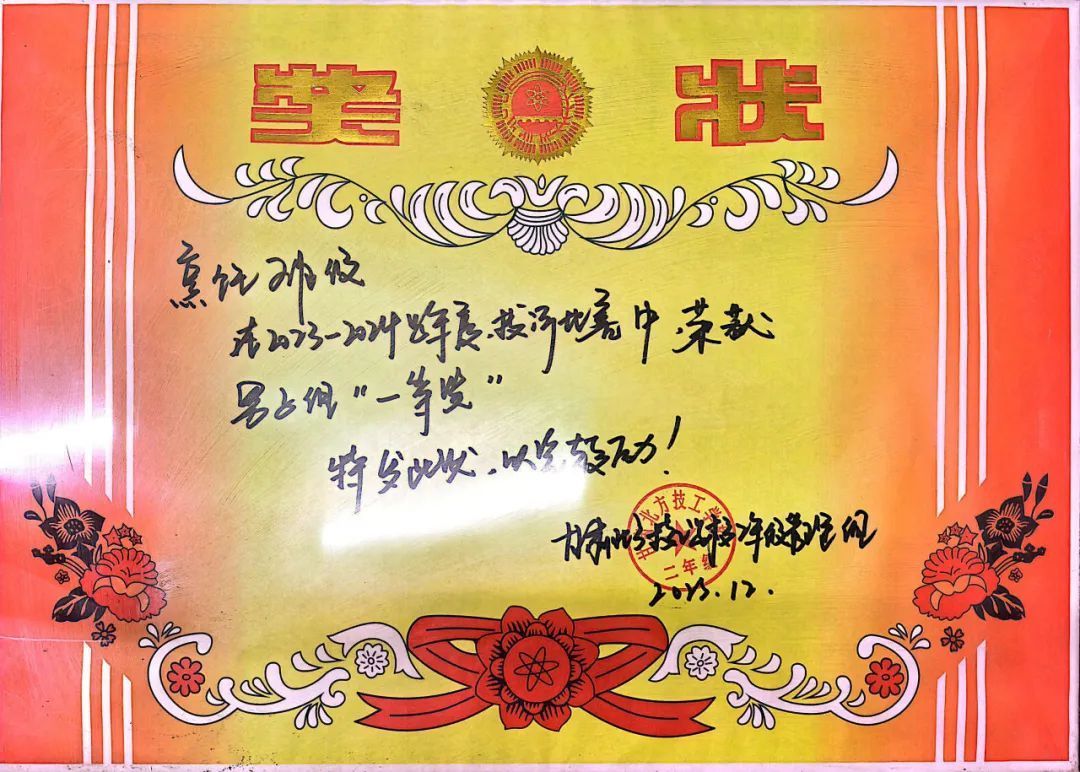 奖状
烹饪班级
在2023-2024学年度,拔河比赛中,荣获
男子组“一等奖”
特发此状,以资鼓励!
甘肃北方技工学校二年级管理组
2023.12.
北方技工学
二年级